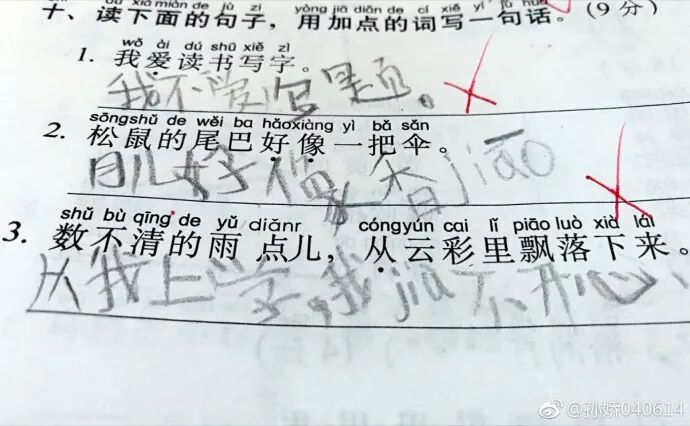 十、读下面的句子，用加点的词写一句话。(9分)
wǒ ài dú shū xiě zì
1. 我爱读书写字。
我不爱写字题。
sōngshǔ de wěi ba hǎoxiàng yì bǎ sǎn
2. 松鼠的尾巴好像一把伞。
月儿好像大香jiāo
shǔ bù qīng de yǔ diǎnr, cóngyún cai lǐ piāo luò xià lái
3. 数不清的雨点儿，从云彩里飘落下来。
从我上学，我jiù不开心
@孙娇040614